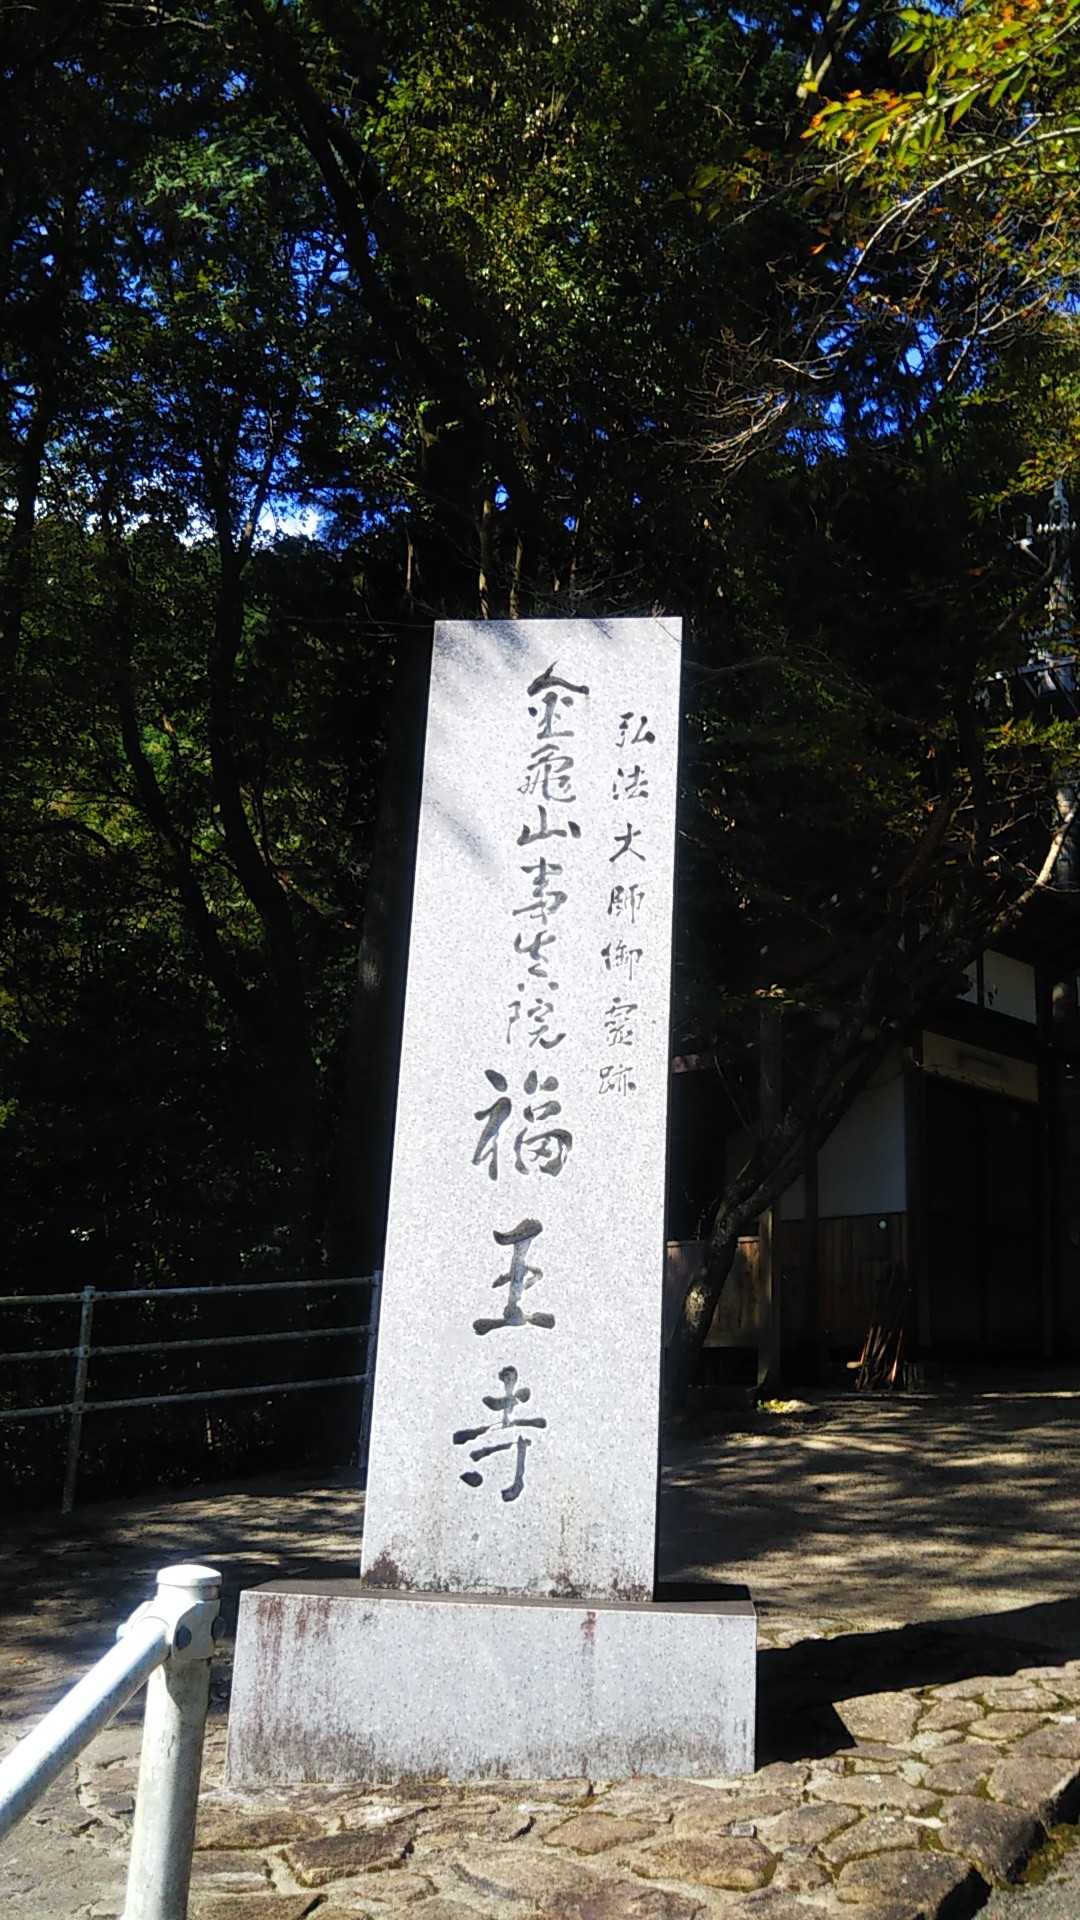 弘法大師御霊跡
金亀山事真院福王寺